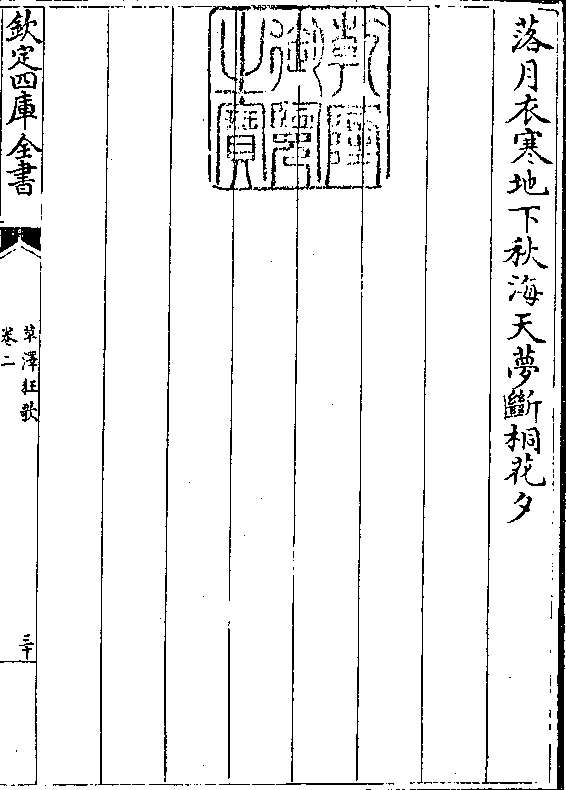 落月衣寒地下秋海天夢斷桐花夕
乾隆
御覽
之寶
欽定四庫全書
草澤狂歌
卷二
三十